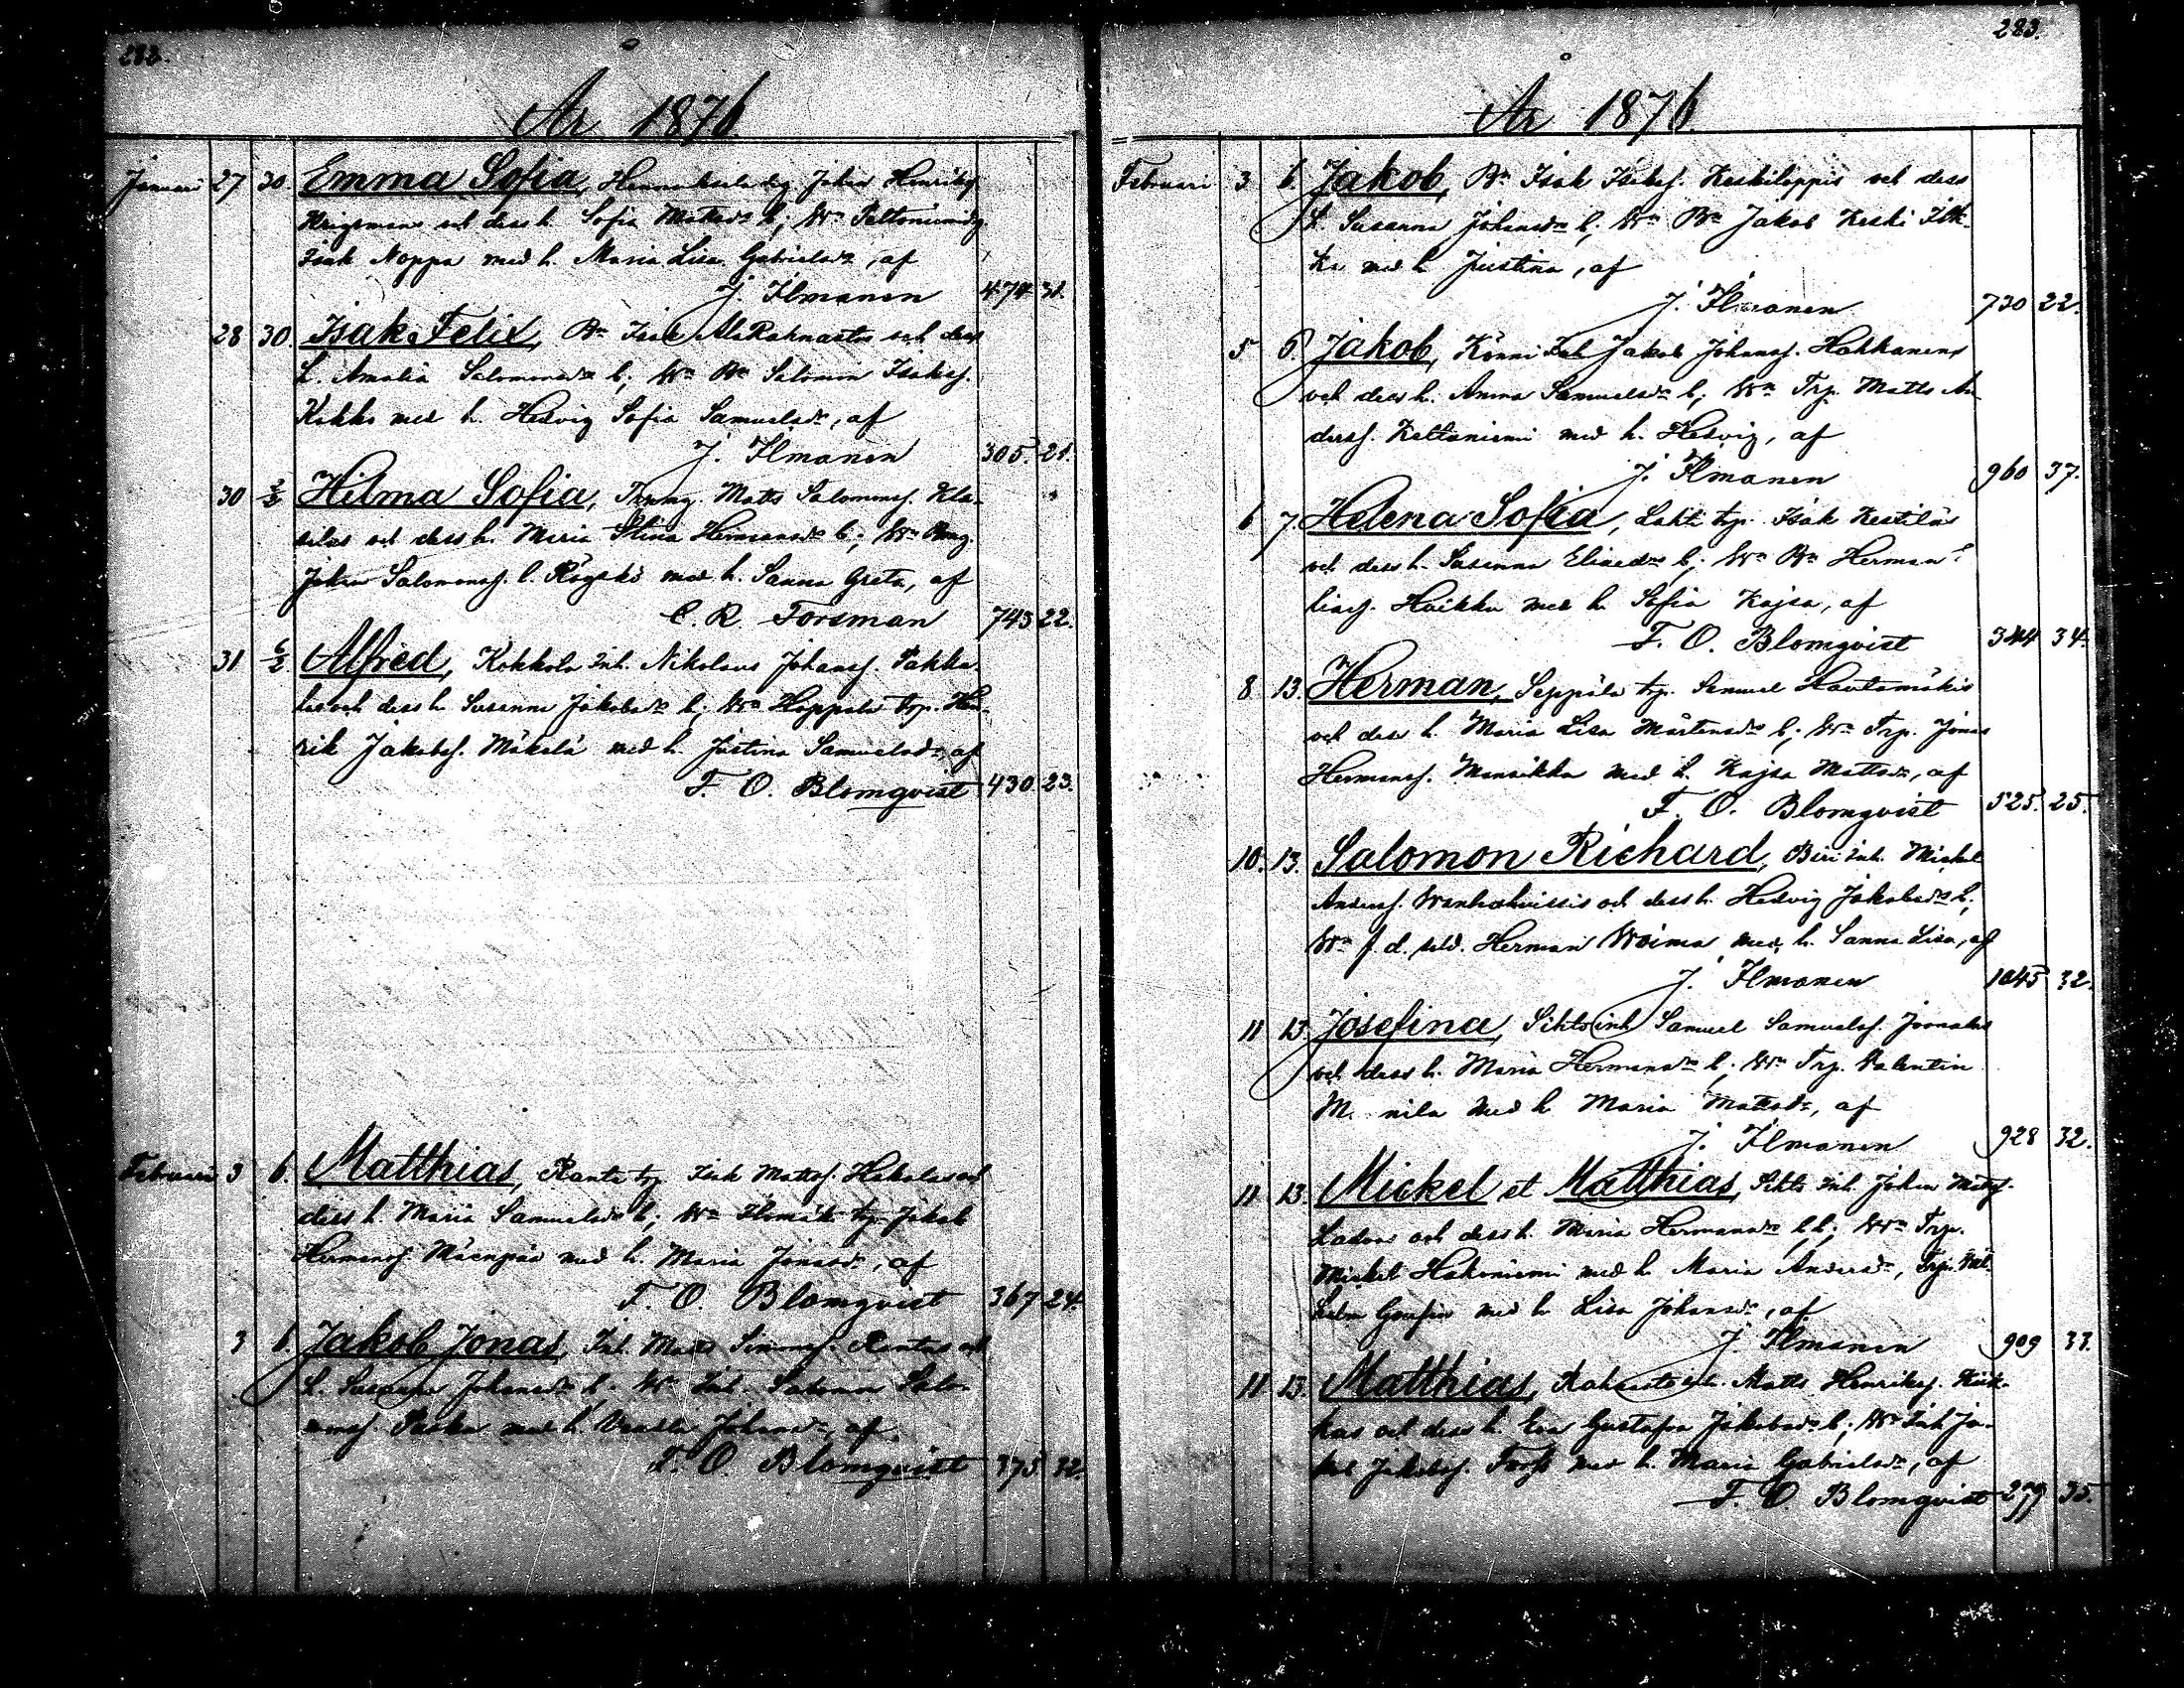 282.
År 1876
Januari 27 30. Emma Sofia, dg. Johan Henriks.
och dess h. Sofia Mattsdr b; Wn
Isak Noppa med h. Maria Lisa Gabrielsdr, af
J. Ilmonen 474 31.
28 30. Isak Felix, Bn Isak AlaRahnasto och dess
h. Amalia Salomonsdr b; Wn Bn Salomon Isaksf.
Kokko med h. Hedvig Sofia Samuelsdr, af
J. Ilmonen 305. 21.
30 2/2 Hilma Sofia, Matts Salomonsf. Kla-
och dess h. Maria Stina Hermansdr b; Wn
Johan Salomonsf. med h. Sanna Greta, af
C. R. Forsman 743 22.
31 6/2. Alfred, Kokkola Inh. Nikolaus Johansf. Takka-
och dess h. Susanna Jakobsdr b; Wn Hoppala trp. Hen-
rik Jakobsf. Mäkelä med h. Justina Samuelsdr, af
F. O. Blomqvist 430 23.
Februari 3 6. Matthias, Ranta trp Isak Mattsf. Hakolas och
dess h. Maria Samuelsdr b; Wn trp Jakob
Hermansf. Mäenpää med h. Maria Jonasdr, af
F. O. Blomqvist 367 24.
3 6. Jakob Jonas, Inh. Matts Simonsf. Rantas och
h. Susanna Johansdr b. Wn Inh. Salomon Salo-
monsf. med h. Johansdr, af
F. O. Blomqvist 375 32.
283.
År 1876.
Februari 3 6. Jakob, Bn Isak Isaksf. Keskiloppis och dess
h. Susanna Johansdr b; Wn Bn Jakob Keski
med h. Justina, af
J. Ilmonen 730 22.
5 6. Jakob, Könni Inh Jakob Johansf. Hakkanens
och dess h. Anna Samuelsdr b; Wn Trp. Matts An-
dersf. Keltaniemi med h. Hedvig, af
J. Ilmonen 960 37.
6 7. Helena Sofia, Lahti trp. Isak Kestiläs
och dess h. Susanna Eliaedr b; Wn Bn Herman E-
liaef. Hoikka med h. Sofia Kajsa, af
F. O. Blomqvist 344 34.
8 13. Herman, Seppälä trp. Samuel Hautamäkis
och dess h. Maria Lisa Mårtensdr b; Wn Trp. Jonas
Hermansf. Mansikka med h. Kajsa Mattsdr, af
F. O. Blomqvist 525. 25.
10. 13. Salomon Richard, Inh. Mickel
Andersf. och dess h. Hedvig Jakobsdr b;
Wn f. d. sold. Herman Woima med h. Sanna Lisa, af
J. Ilmonen 1045 32.
11 13. Josefina, inh Samuel Samuelsf.
och dess h. Maria Hermansdr b; Wn Trp. Valentin
med h Maria Mattsdr, af
J. Ilmonen 928 32.
11 13. Mickel et Matthias, Inh. Johan Mattsf.
och dess h. Maria Hermansdr bb; Wn Trp.
Mickel Hakoniemi med h. Maria Andersdr, Trp. Wil-
helm med h Lisa Johansdr, af
J. Ilmonen 909 33.
11 13. Matthias, inh. Matts Henriksf.
och dess h. Eva Gustafva Jakobsdr b; Wn Inh Ja-
kob Jakobsf. med h. Maria Gabrielsdr, af
F. O Blomqvist 279 35.